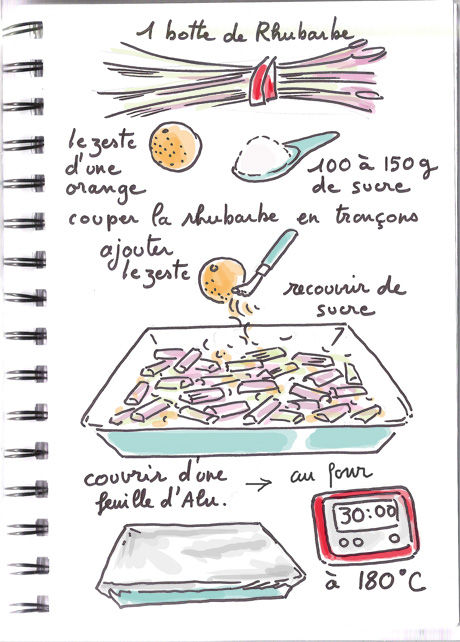 1 botte de Rhubarbe
le zeste
d'une
orange
100 à 150g
de sucre
couper la rhubarbe en tronçons
ajouter
le zeste
recouvrir de
sucre
couvrir d'une
feuille d'Alu.
→ au four
30:00
à 180°C